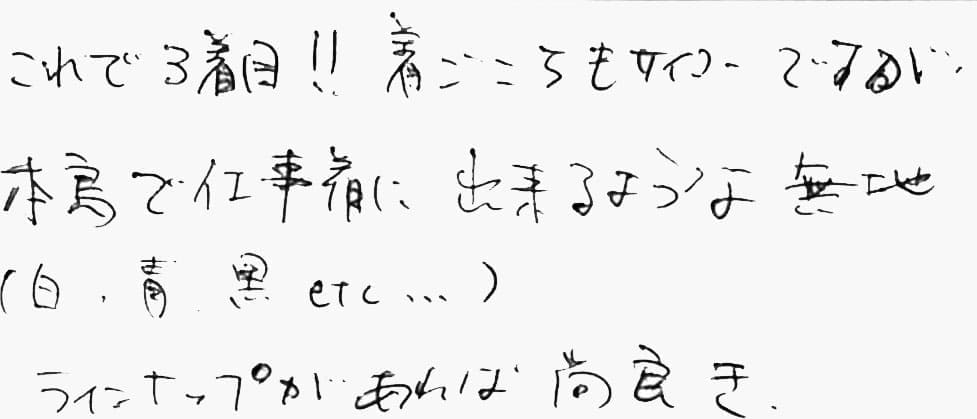 これで3着目!! 着ごこちもサイコーですが、
本島で仕事着に出来るような無地
(白、青、黒 etc...)
ラインナップがあれば尚良き.